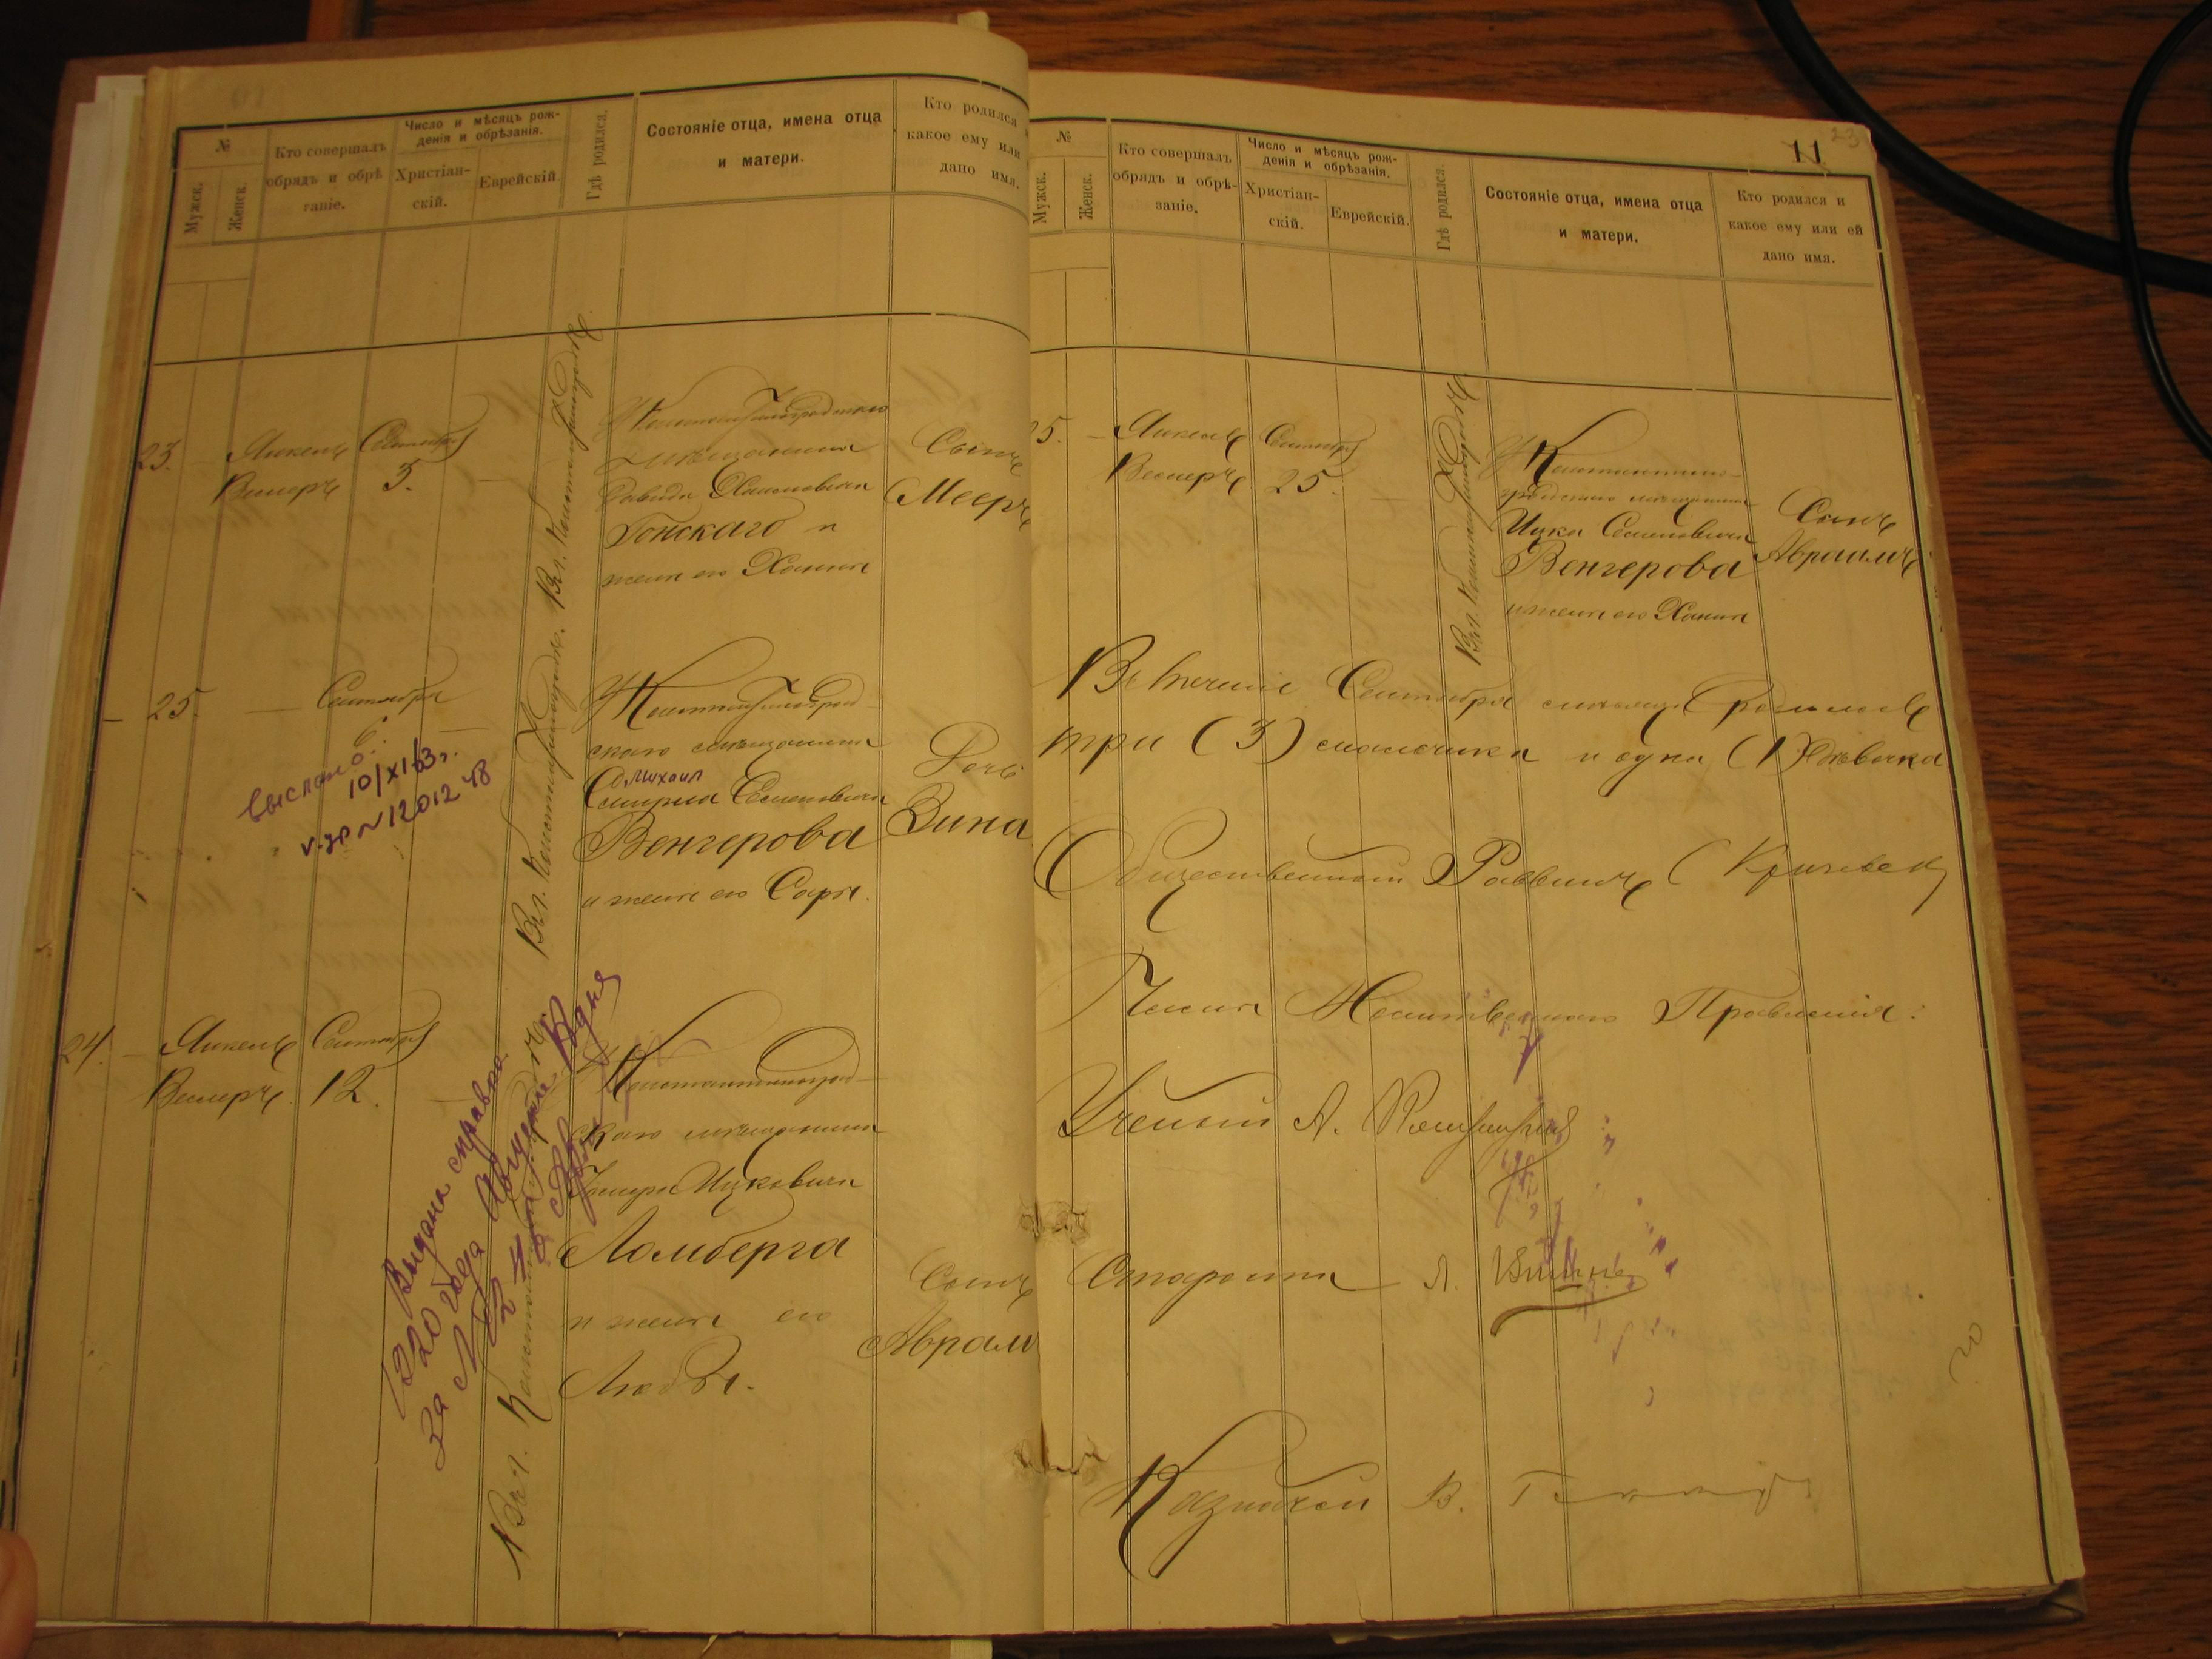 №
Мужск.
Женск.
Кто совершалъ
обрядъ и обрѣ
заніе.
Число и мѣсяцъ рож-
денія и обрѣзанія.
Христіан-
скій.
Еврейскій
Гдѣ родился.
Состояніе отца, имена отца
и матери.
Кто родился
какое ему или
дано имя.
23.
Янкель
Веснеръ
Сентября
3.
Въ г. Константиноградѣ.
Константиноградскаго
мѣщанина
Давида Хаимовича
Гонскаго и
жены его Ханны
Сынъ
Мееръ
25.
Сентября
6.
Въ г. Константиноградѣ.
Константиноград-
скаго мѣщанина
Михаил
Семеновича
Венгерова
и жены его Сары.
Дочь
Зина
выслано
10/XI 63 г.
12012
24.
Янкель
Веснеръ
Сентября
12.
Въ г. Константиноградѣ
Константиноград-
скаго мѣщанина
Ицковича
Ломберга
и жены его
Любы.
Сынъ
Абрам
Выдана справка
1220 года Августе дня
за №
11
23
№
Мужск.
Женск.
Кто совершалъ
обрядъ и обрѣ-
заніе.
Число и мѣсяцъ рож-
денія и обрѣзанія.
Христіан-
скій.
Еврейскій.
Гдѣ родился.
Состояніе отца, имена отца
и матери.
Кто родился и
какое ему или ей
дано имя.
25.
Янкель
Веснеръ
Сентября
25.
Въ г. Константиноградѣ
Константино-
градскаго мѣщанина
Ицка Семеновича
Венгерова
и жены его Ханны
Сынъ
Авраамъ
Въ теченіе Сентября мѣсяца родились
три (3) мальчика и одна (1) дѣвочка
Общественный Раввинъ
Члены Молитвеннаго Правленія:
Ученый А.
Староста Л.
Казначей В.